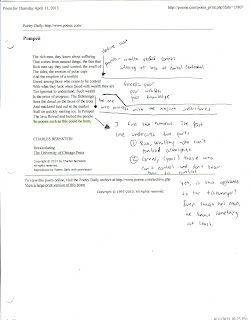 Poem for Thursday April 11, 2013
http://poems.com/poem_print.php?date=15807
Poetry Daily: http://www.poems.com/
Pompeii
The rich men, they know about suffering
That comes from natural things, the fate that
Rich men say they can't control, the swell of
The tides, the erosion of polar caps
And the eruption of a terrible
Greed among those who cease to be content
With what they lack when faced with wealth they are
Too ignorant to understand. Such wealth
Is the price of progress. The fishmonger
Sees the dread on the faces of the trout
And mackerel laid out at the market
Stall on quickly melting ice. In Pompeii
The lava flowed and buried the people
So poems such as this could be born.
CHARLES BERNSTEIN
Recalculating
The University of Chicago Press
Copyright © 2013 by Charles Bernstein
All rights reserved.
Reproduced by Poetry Daily with permission
To view this poem online, visit the Poetry Daily archive at http://www.poems.com/archive.php
View a large print version of this poem
Copyright © 1997-2013. All rights reserved.
greedy poor
poor wealth
poor knowledge
I find this humorous. The first
line undercuts two parts
① Rich, wealthy who can't
control
② Greedy (poor) those who
can't control and don't know
how to control
yes, is this applicable
to the fishmonger?
he knows something
at least.